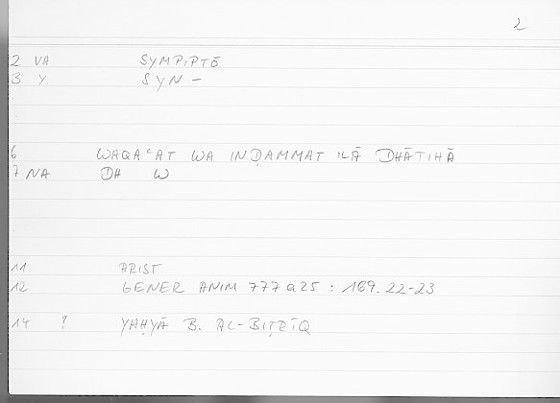 2
2 VA SYMPIPTŌ
3 Y SYN –
6 WAQAᶜAT WA INḌAMMAT ILĀ DHĀTIHĀ
7 NA DH W
11 ARIST
12 GENER ANIM 777a25 : 169.22-23
14 ? YAḤYĀ B. AL-BIṬRĪQ